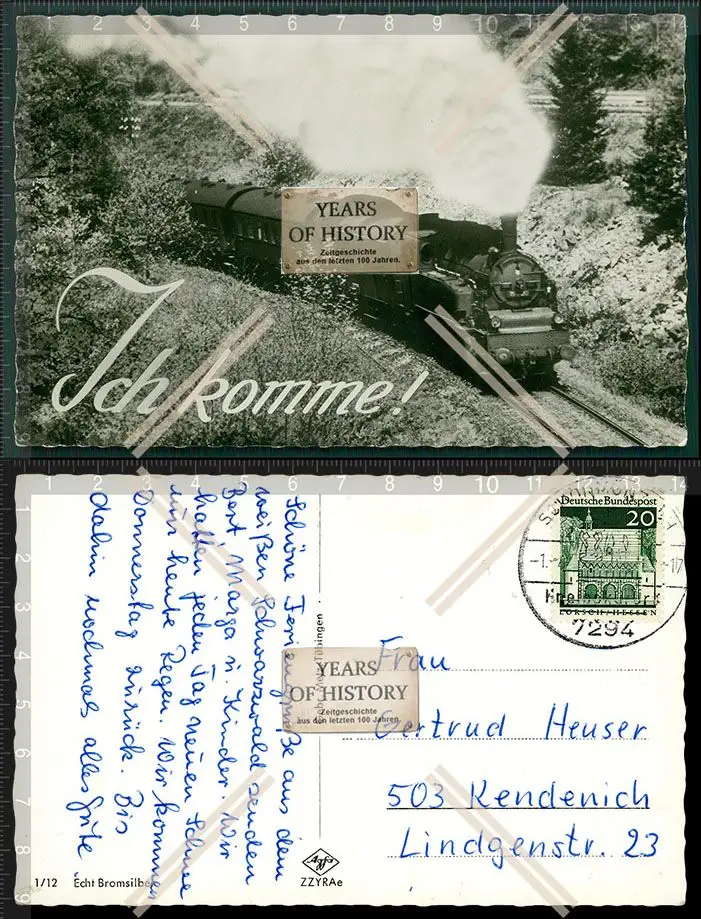 YEARS
OF HISTORY
Zeitgeschichte
aus den letzten 100 Jahren.
Ich komme!
Schöne Feriengrüße aus dem
weißen Schwarzwald senden
Bert Marga u. Kinder. Wir
hatten jeden Tag neuen Schnee
nur heute Regen. Wir kommen
Donnerstag zurück. Bis
dahin nochmals alles Gute
Tübingen
YEARS
OF HISTORY
Zeitgeschichte
aus den letzten 100 Jahren.
Deutsche Bundespost
20
LORSCH/HESSEN
7294
Frau
Gertrud Heuser
503 Kendenich
Lindgenstr. 23
1/12 Echt Bromsilber
Agfa
ZZYRAe